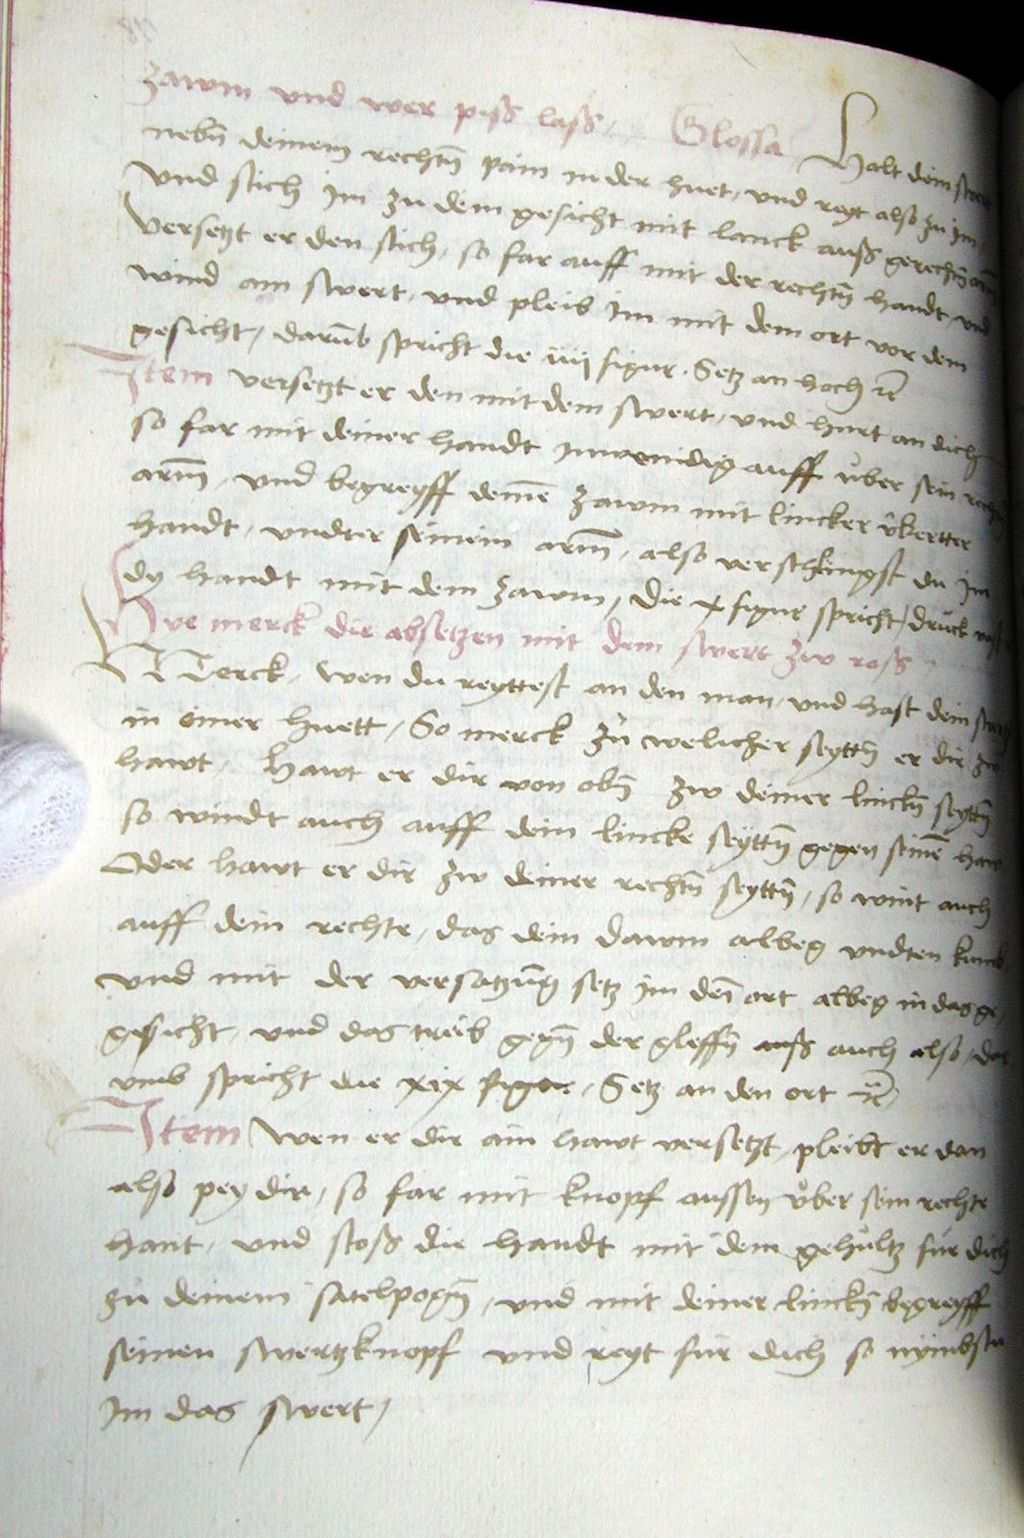 zawm vnd wer piß laß / Glossa Halt dein swert
nebn̄ deinem rechtn̄ pain in der huet / vnd reyt also zu im /
vnd stich im zu dem gesicht mit lanck auß gerecktn̄ arm
Versetzt er den stich / so far auff mit der rechtn̄ handt / vnd
wind am swert / vnd pleib im mit dem ort vor dem
gesicht / darūb spricht die iiij figur . Setz an hoch ꝛc̄
Item versetzt er den mit dem swert / vnd hurt an dich
so far mit deiner handt inwendig auff über sein recht
arm̄ / vnd begreyff denn̄ zawm mit lincker v̈kertter
handt / vndter seinem arm̄ / also verschlingst du im
dy handt mit dem zawm / Die x figur spricht / druck vast
Hye merck die absetzen mit dem swert zw roß
Merck / wen du reyttest an den man / vnd hast dein swert
in einer huett / So merck zu welicher seyttn̄ er dir zw
hawt / Hawt er dir von obn̄ zw deiner linckn̄ seyttn̄
so windt auch auff dein lincke seyttn̄ gegen seinē haw
Oder hawt er dir zw deiner rechtn̄ seyttn̄ / so wint auch
auff dein rechte / das dein dawm albeg vndten kumb
vnd mit der versatzūg setz im den̄ ort albeg in das ge /
gesicht / vnd das treib gegn̄ der gleffn̄ auß auch also / dar
vmb spricht die xix figur / Setz an den ort ꝛc̄
Item Wen er dir ain hawt versetzt / pleibt er dan
also pey dir / so far mit knopf aussen über sein rechte
hant / vnd stoß die handt mit dem gehültz für dich
zu deinem satelpogn̄ / vnd mit deiner linckn̄ begreyff
seinen swertzknopf vnd reyt für dich so nÿmbstu
im das swert /